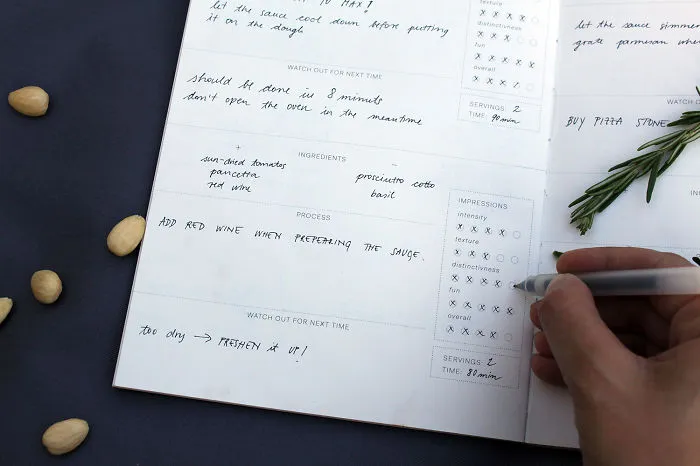 TO MAX!
let the sauce cool down before putting
it on the dough
WATCH OUT FOR NEXT TIME
should be done in 8 minuts
don't open the oven in the meantime
texture
distinctivness
fun
overall
SERVINGS: 2
TIME: 90 min
+
INGREDIENTS
-
sun-dried tomatos
pancetta
red wine
prosciutto cotto
basil
PROCESS
ADD RED WINE WHEN PREPEARING THE SAUCE.
IMPRESSIONS
intensity
texture
distinctivness
fun
overall
WATCH OUT FOR NEXT TIME
too dry → FRESHEN it UP!
SERVINGS: 2
TIME: 80 min
let the sauce simmer
grate parmesan
WATCH
BUY PIZZA STONE